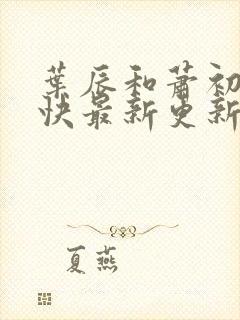 葉辰和蕭初
快最新更新
夏燕